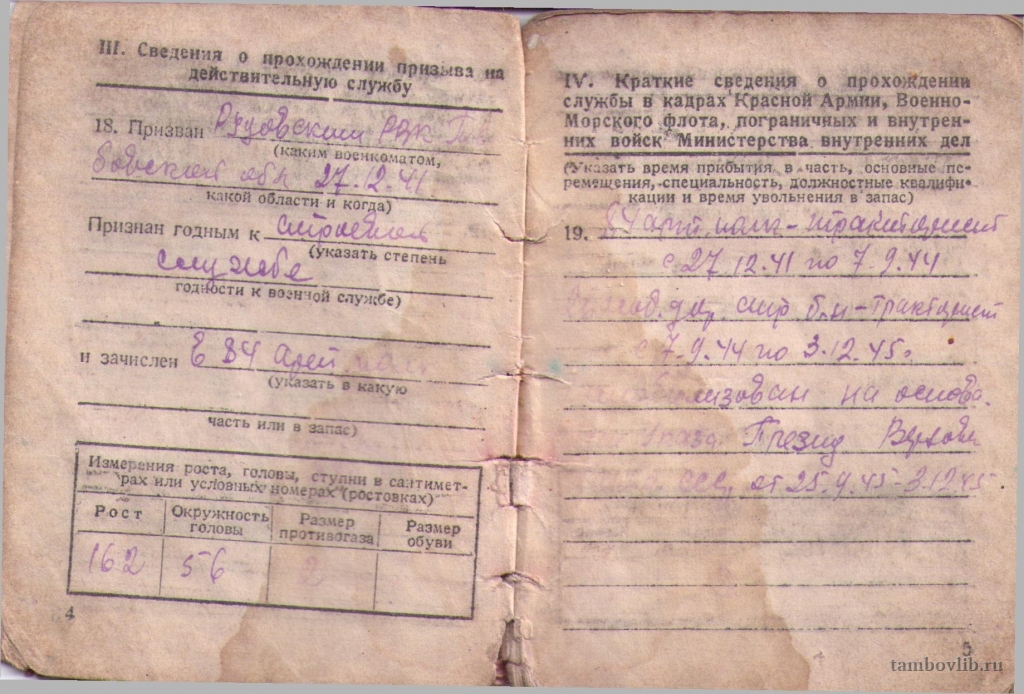 III. Сведения о прохождении призыва на
действительную службу
18. Призван Рудовским РВК Там
(каким военкоматом,
бовской обл 27.12.41
какой области и когда)
Признан годным к строевой
(указать степень
службе
годности к военной службе)
и зачислен В 84 арт полк
(указать в какую
часть или в запас)
Измерения роста, головы, ступни в сантимет-
рах или условных номерах (ростовках)
Рост Окружность головы Размер противогаза Размер обуви
162 56 2
4
IV. Краткие сведения о прохождении
службы в кадрах Красной Армии, Военно-
Морского флота, пограничных и внутрен-
них войск Министерства внутренних дел
(Указать время прибытия в часть, основные пе-
ремещения, специальность, должностные квалифи-
кации и время увольнения в запас)
19. 84 арт. полк - тракторист
с 27.12.41 по 7.9.44
дор. стр. б-н - тракторист
с 7.9.44 по 3.12.45г
на основа.
Указа Презид. Верховн
ССС, от 25.9.45 - 3.12.45
5
tambovlib.ru